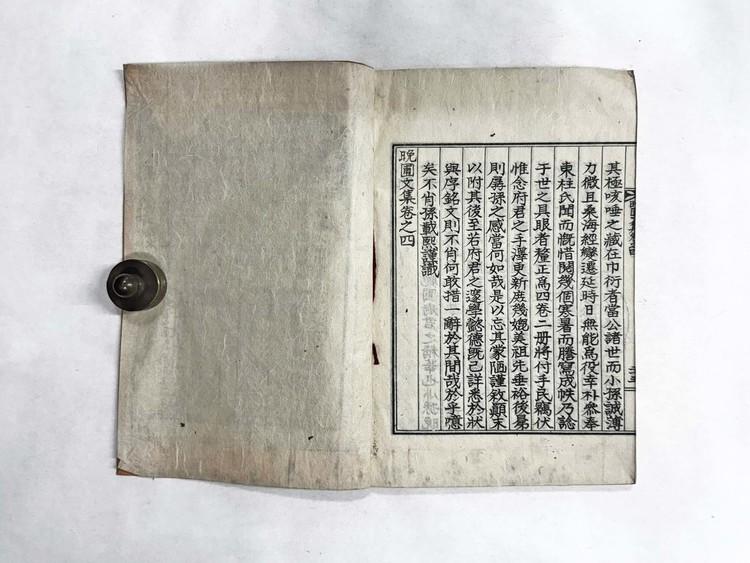 其極咳唾之藏在巾衍者當公諸世而小孫誠薄
力微且桑海經變遷延時日無能爲役幸朴叅奉
東柱氏聞而慨惜閱幾個寒暑而謄寫成帙乃諗
于世之具眼者釐正爲四卷二冊將付手民竊伏
惟念府君之手澤更新庶幾媲美祖先垂裕後昆
則孱孫之感當何如哉是以忘其蒙陋謹敘顚末
以附其後至若府君之邃學懿德旣已詳悉於狀
與序銘文則不肖何敢措一辭於其間哉於乎噫
矣不肖孫載熙謹識
晩圃文集卷之四